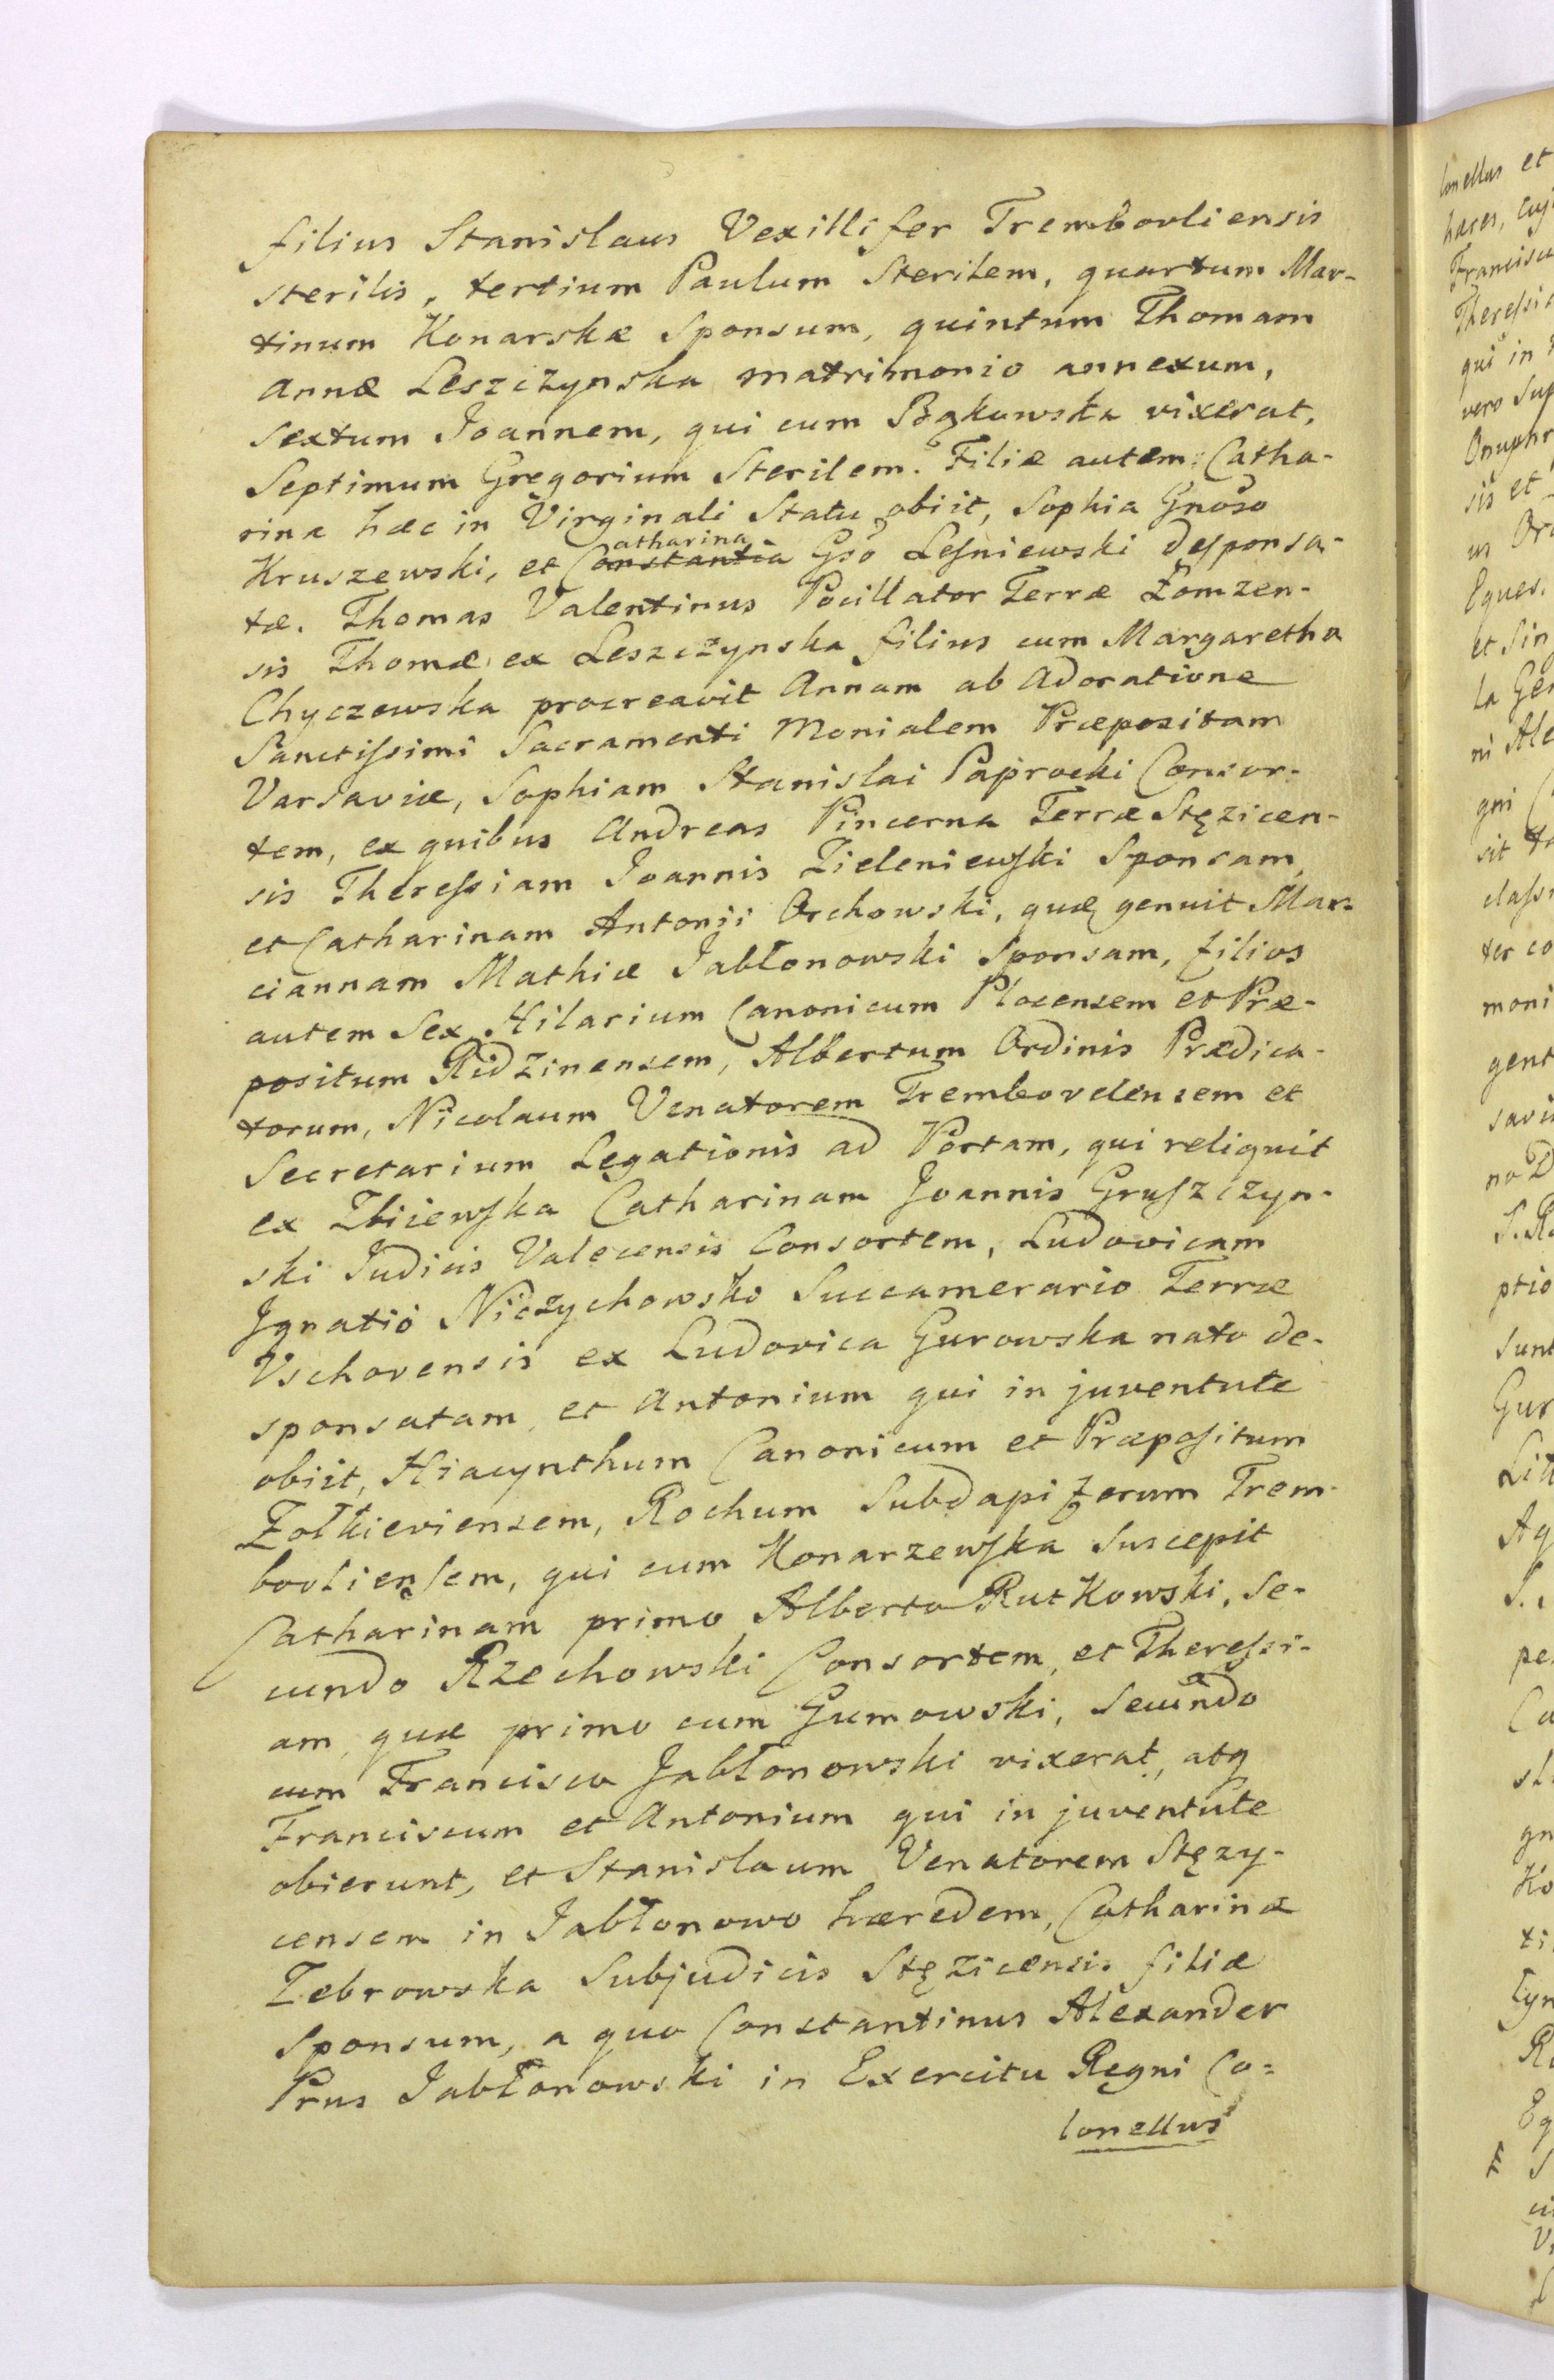 filius Stanislaus Vexillifer Trembovliensis
sterilis, tertium Paulum Sterilem, quartum Mar-
tinum Konarskæ Sponsum, quintum Thomam
Annæ Leszczynska matrimonio annexum,
Sextum Joannem, qui cum Bąkowska vixerat,
Septimum Gregorium Sterilem. Filiæ autem: Catha-
rina hæc in Virginali Statu obiit, Sophia Gnoso
Kruszewski, et Catharina Gso Leśniewski desponsa-
tæ. Thomas Valentinus Pocillator Terræ Łomzen-
sis Thomæ ex Leszczynska filius cum Margaretha
Chyczewska procreavit Annam ab Adoratione
Sanctissimi Sacramenti Monialem Præpositam
Varsaviæ, Sophiam Stanislai Paprocki Consor-
tem, ex quibus Andreas Pincerna Terræ Stęzicen-
sis Theressiam Joannis Zieleniewski Sponsam,
et Catharinam Antonii Orchowski, quæ genuit Mar-
ciannam Mathiæ Jabłonowski Sponsam, filios
autem Sex, Hilarium Canonicum Plocensem et Præ-
positum Ridzinensem, Albertum Ordinis Prædica-
torum, Nicolaum Venatorem Trembovelensem et
Secretarium Legationis ad Portam, qui reliquit
ex Zbiiewska Catharinam Joannis Gruszczyn-
ski Judicis Valecensis Consortem, Ludovicam
Jgnatio Niezychowski Succamerario Terræ
Vschovensis ex Ludovica Gurowska nato de-
sponsatam, et Antonium qui in juventute
obiit, Hiacynthum Canonicum et Præpositum
Żołkieviensem, Rochum Subdapiferum Trem-
bovliensem, qui cum Konarzewska Suscepit
Catharinam primo Alberto Rutkowski, Se-
cundo Rzechowski Consortem, et Theressi-
am, quæ primo cum Gumowski, Secundo
cum Francisco Jabłonowski vixerat, atq
Franciscum et Antonium qui in juventute
obierunt, et Stanislaum Venatorem Stęzy-
censem in Jabłonowo hæredem, Catharinæ
Zebrowska Subjudicis Stęzicensis filiæ
Sponsum, a quo Constantinus Alexander
Prus Jabłonowski in Exercitu Regni Co=
lonellus
lonellus et
Theressia
qui in
sis et
Eques.
moni
ptio
sunt
Gur